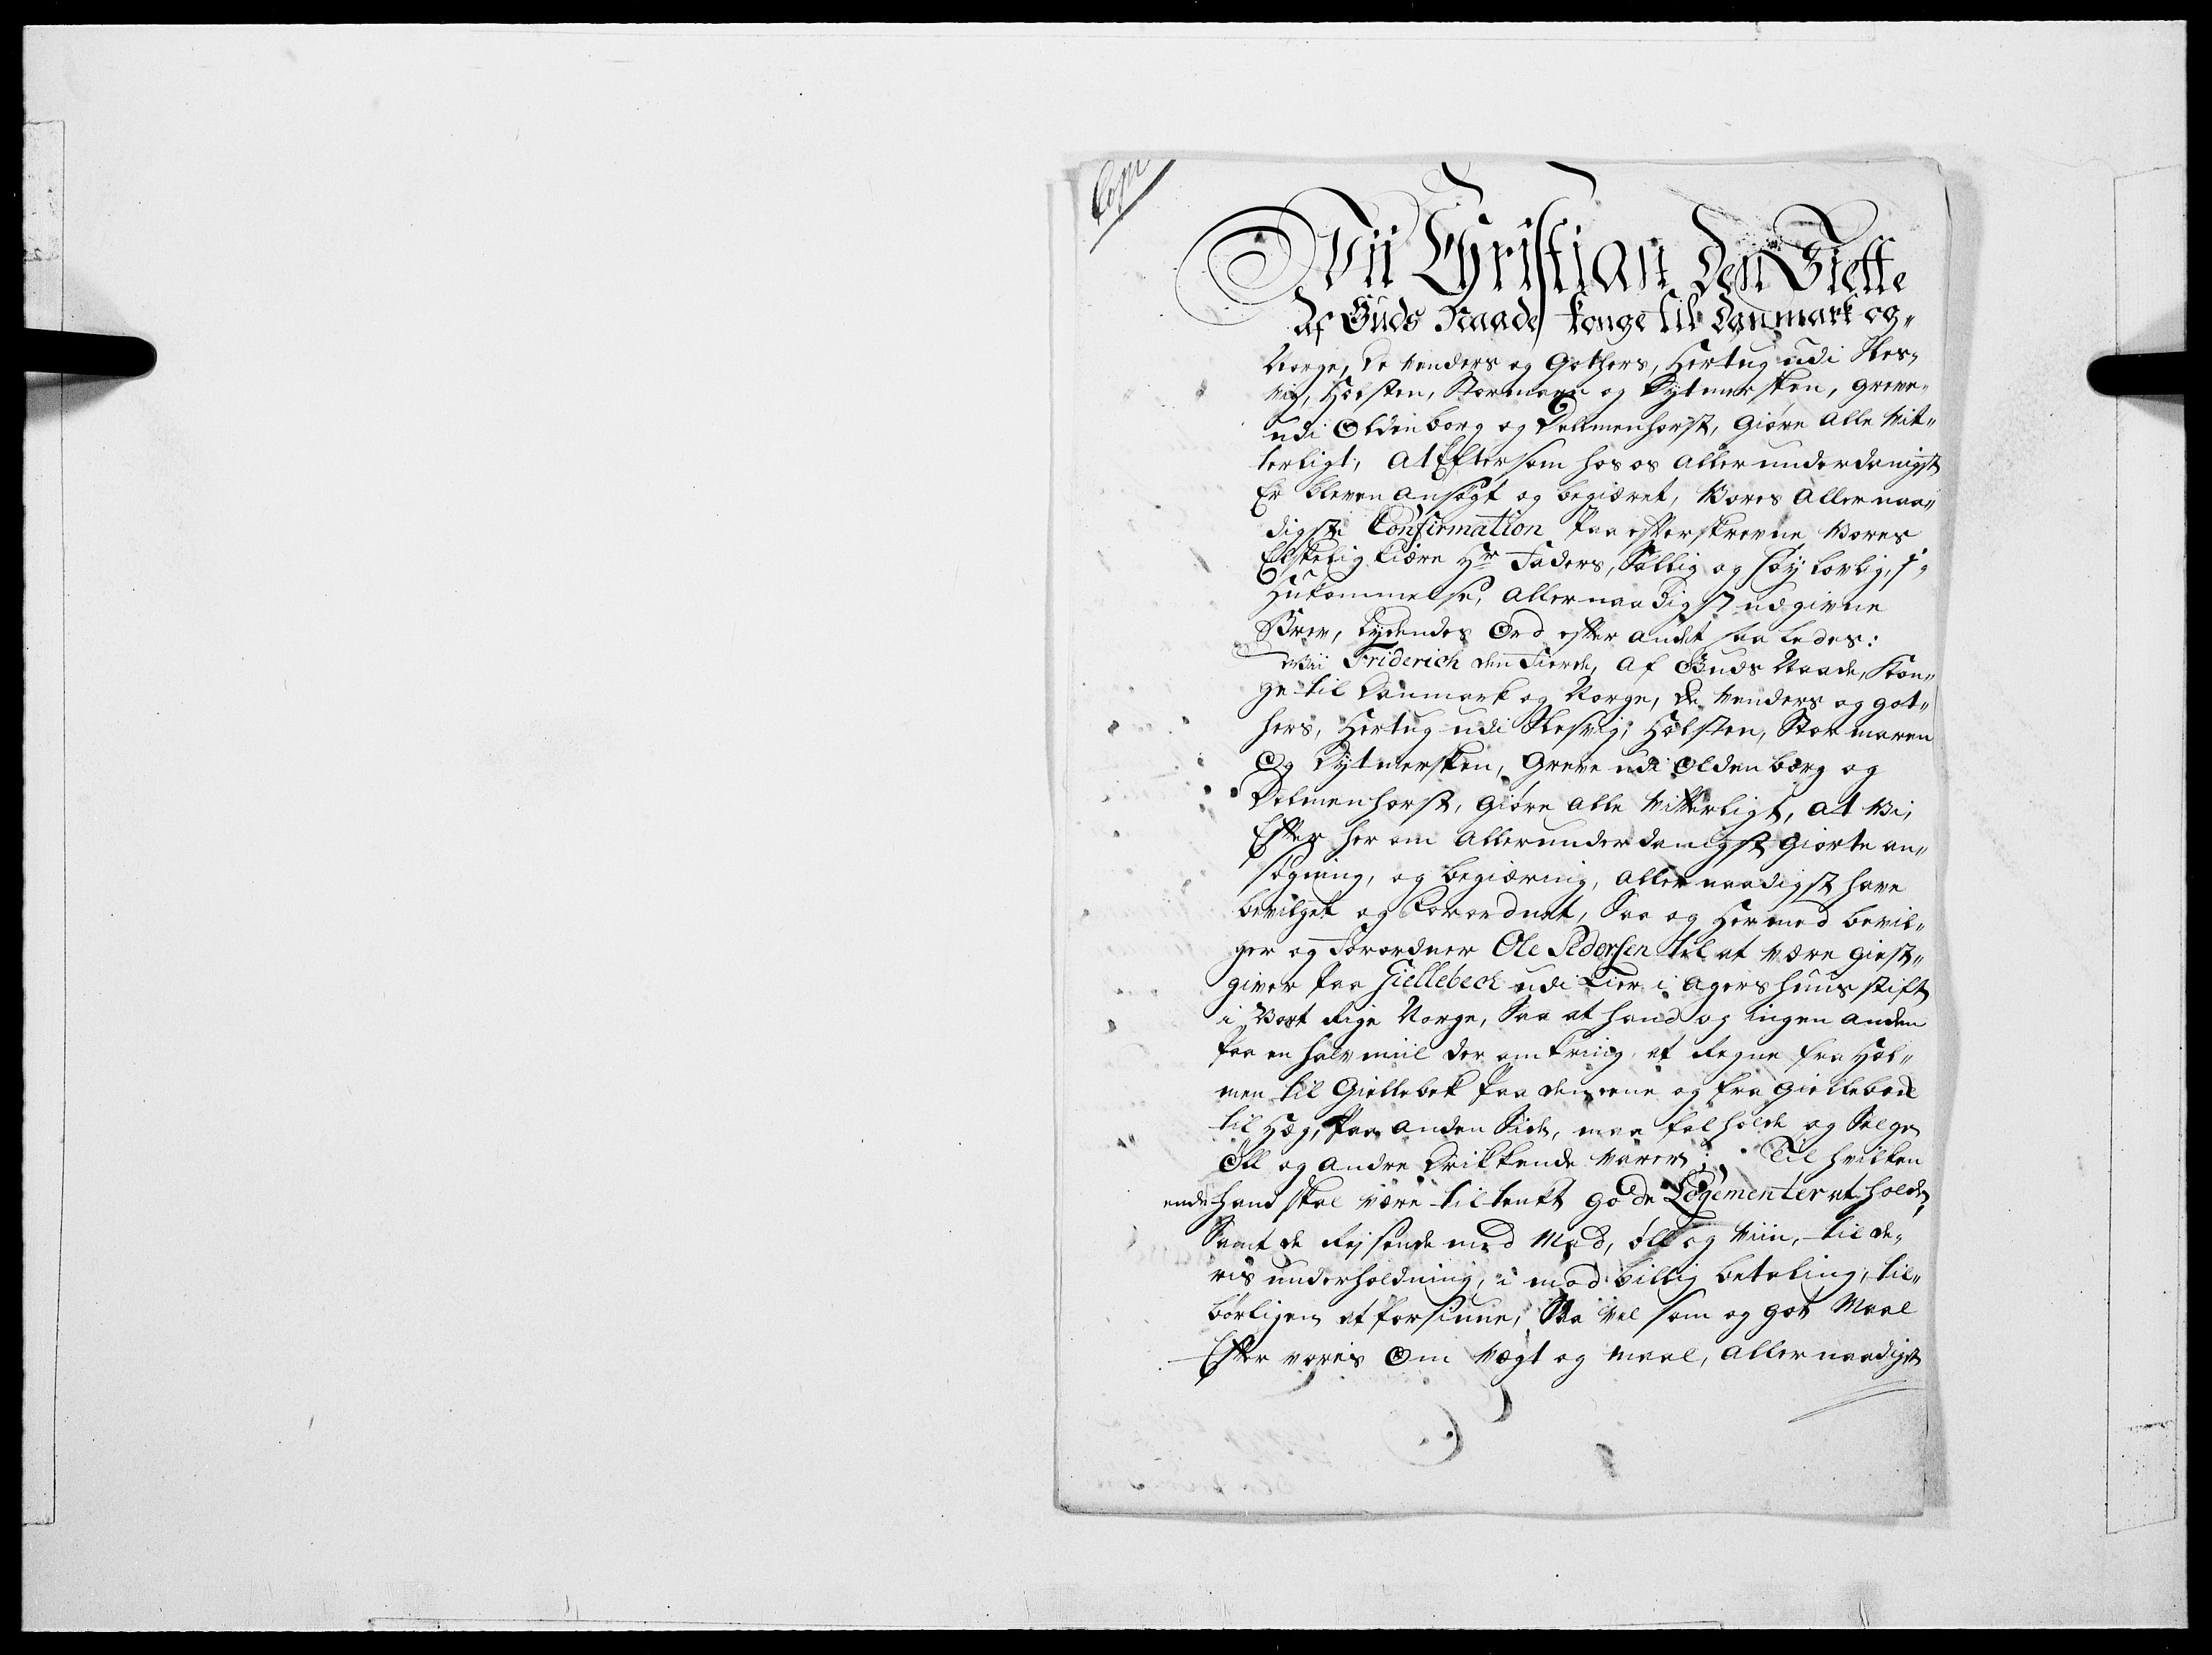 Copi
Vii Christian den Siette
Af Guds Naade, konge til Danmark og„
Norge, de Venders og Gothers, Hertug udi Sles„
vig, Holsten, Stormarn og Dytmersken, Greve„
udi Oldenborg og Delmenhorst, Giøre alle Vit„
terligt, At Eftersom hos os allerunderdanigst
Er bleven ansøgt og begiæret, Vores allernaa„
digste Confirmation paa efterskrevne Vores
Elskelig kiære Hr Faders, Sallig og høylovlig, j„
Hukommelse, allernaadigst udgivne
Brev, lydendes Ord efter andet saaledes:
Vii Friderich den Fierde, af Guds Naade, Kon„
ge til Danmark og Norge, de Venders og got„
hers, Hertug udi Slesvig, Holsten, Stormaren
Og Dytmersken, Greve udi Oldenborg og
Delmenhorst, Giøre alle Vitterligt, at Vi,
Efter her om allerunderdanigst giorte an„
søgning, og begiæring, allernaadigst have
bevilget og Forordnet, Saa og Hermed bevil„
ger og Forordner Ole Pedersen til at være giest„
giver paa Giellebech udi Lier i Agershuus stift
i Vort Rige Norge, Saa at hand og ingen anden
paa en halv miil der omkring, at Regne fra Hol„
men til Giellebek paa den eene og fra Giellebech
til Hæg, Paa anden Side, maa falholde og Selge
Øll og andre Drikkende Varer; Til hvilken
ende hand skal være tiltenkt gode Logementer at holde,
Samt de Rejsende med Mad, øll og Viin, til de„
ris underholdning, i mod billig betaling, til„
børligen at forsiune, Saa vel som og got Maal
Efter voris Om Vægt og Maal, allernaadigst